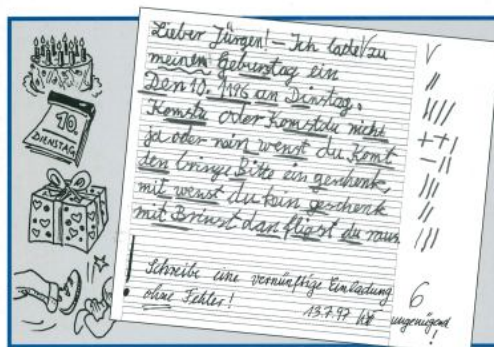 10.
DIENSTAG
Lieber Jürgen! – Ich lade √ zu
meinen Geburstag ein
Den 10. 1196 an Dinstag.
Komstu oder Komstdu nicht
ja oder nain wenst du Komt
den bringe Bitte ein geschenk,
mit wenst du kein geschenk
mit Brinst dan fligst du raus
Schreibe eine vernünftige Einladung
ohne Fehler! 13.7.97
6
ungenügend
!